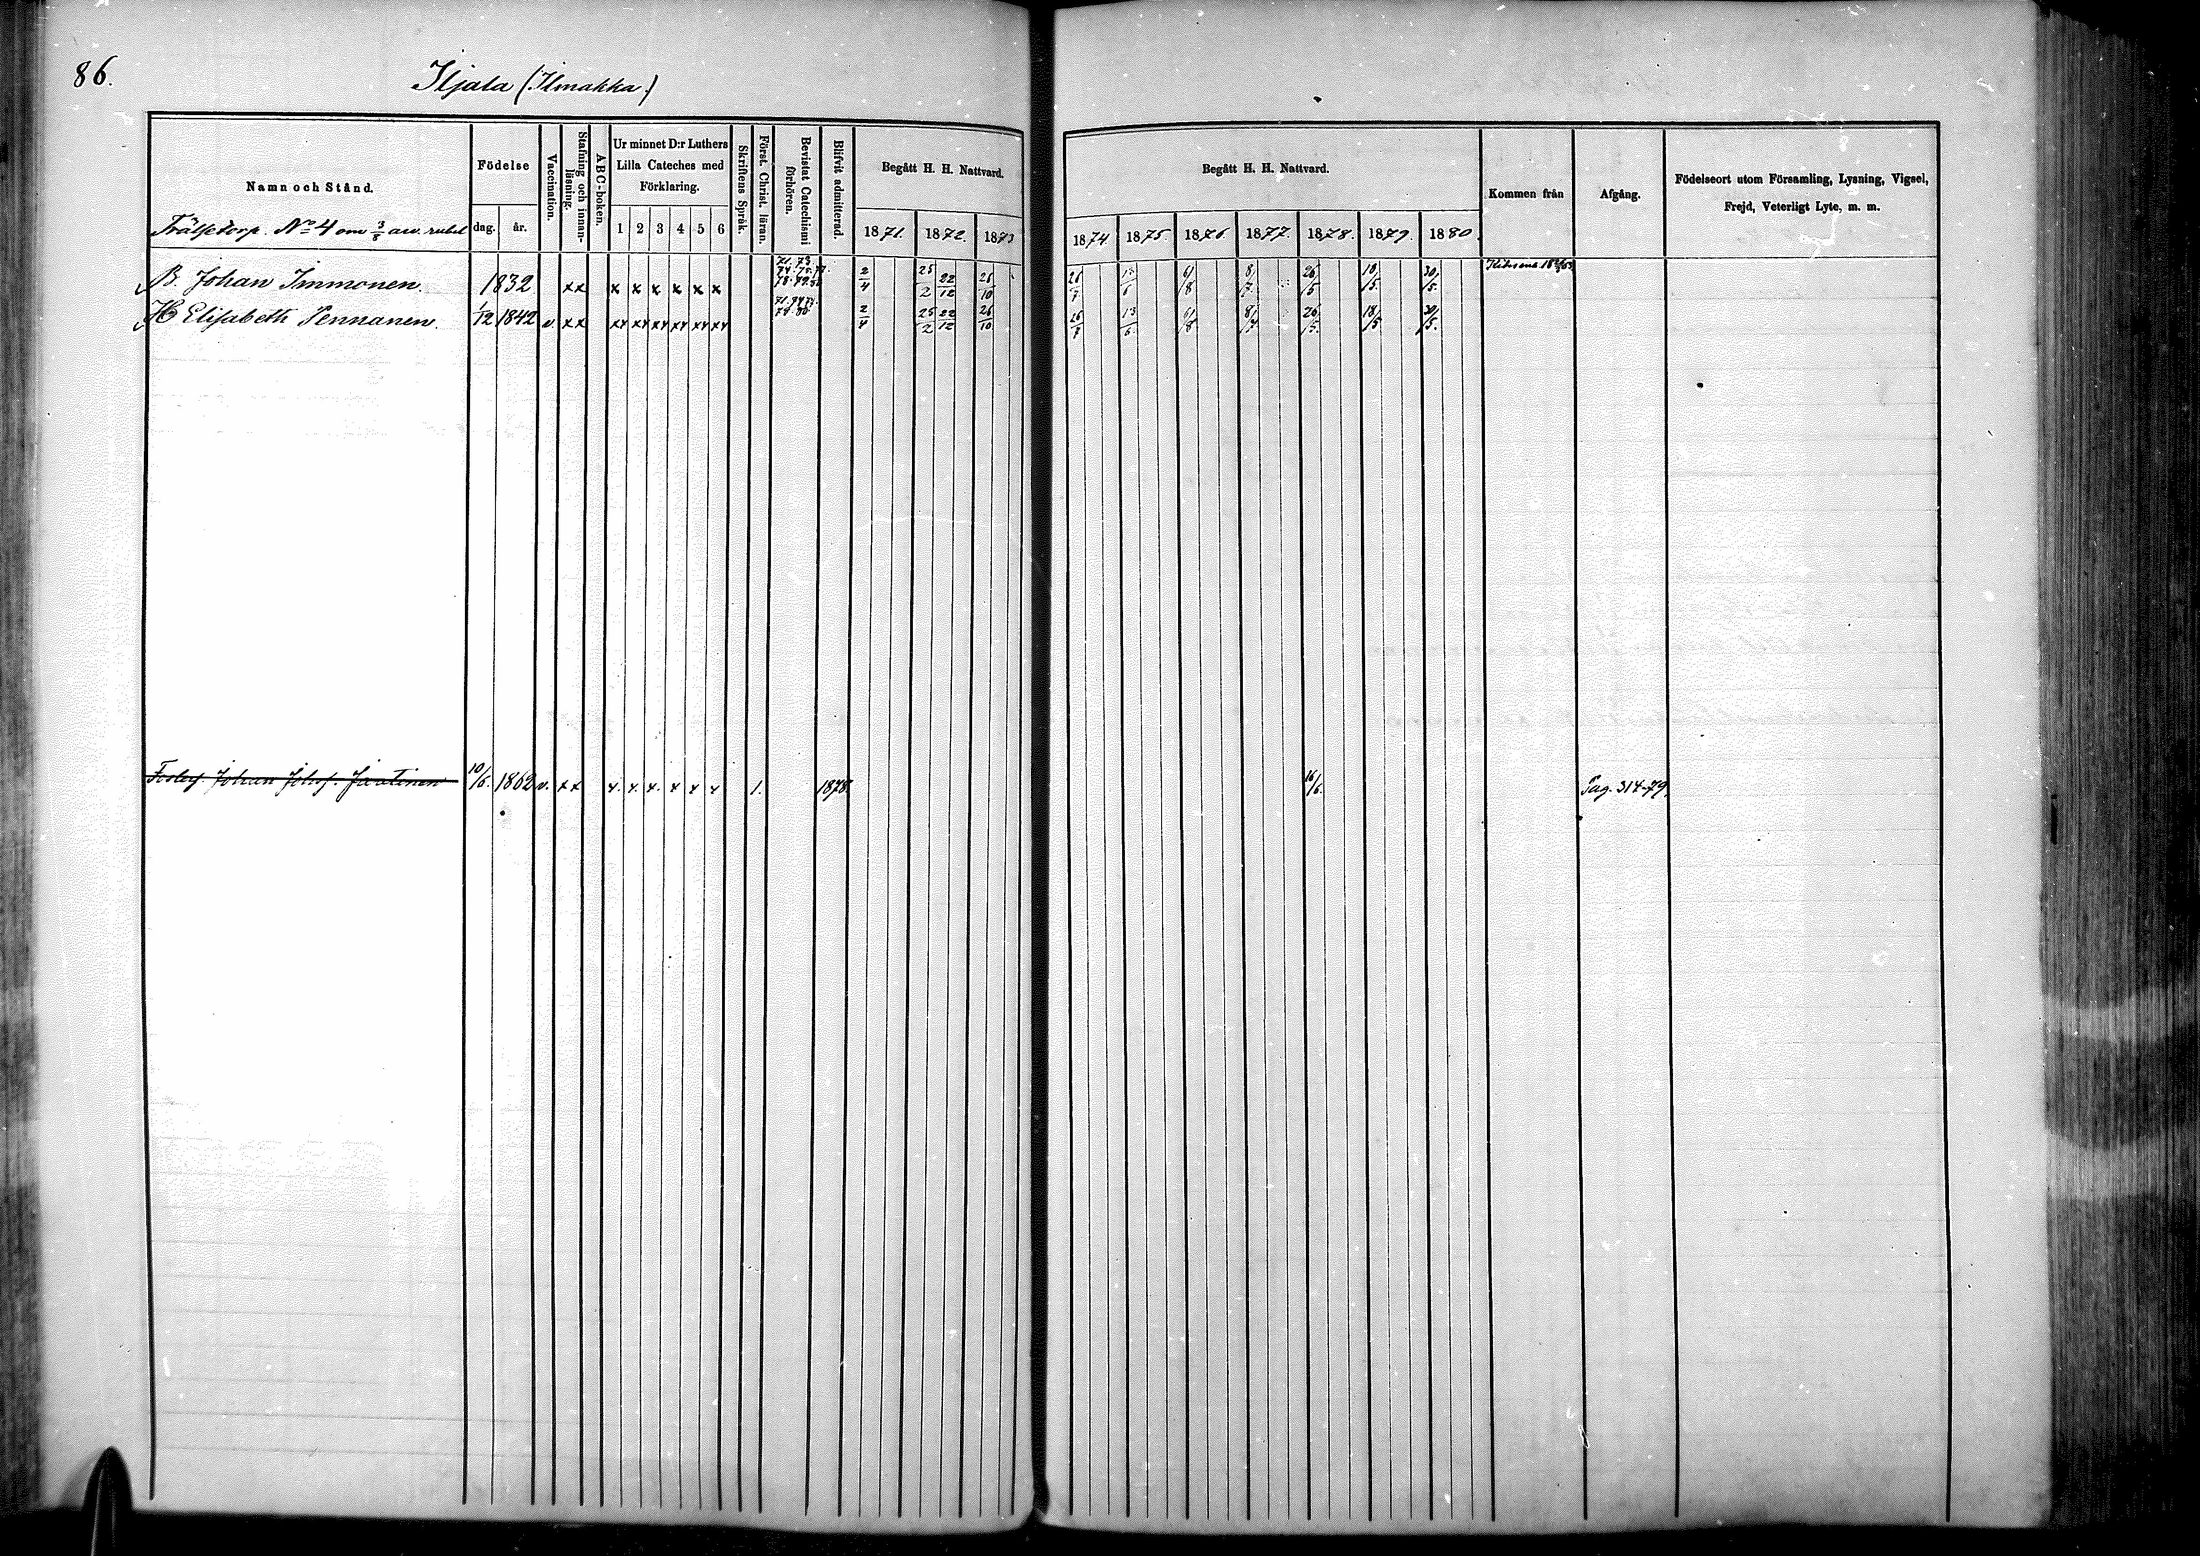 86.
Iljala (Ilmakka)
Namn och Stånd.
Födelse
dag.
år.
Vaccination.
Stafning och innan-
läsning.
ABC-boken.
Ur minnet D:r Luthers
Lilla Cateches med
Förklaring.
1 2 3 4 5 6
Skriftens Språk.
Först. Christ. läran.
Bevistat Catechismi
förhören.
Blifvit admitterad.
Begått H. H. Nattvard.
1871. 1872. 1873
Begått H. H. Nattvard.
1874 1875. 1876 1877. 1878. 1879. 1880.
Kommen från
Afgång.
Födelseort utom Församling, Lysning, Vigsel,
Frejd, Veterligt Lyte, m. m.
Frälsetorp. No 4 om 3/8 arv. rubel
B. Johan Immonen. 1832 xx x x x x x x 2/4 25/2 22/12 26/10 26/7 13/6 6/8 8/7 26/5 18/5. 30/5.
H Elisabeth Pennanen. 1/12 1842 v. xx 2/4 25/2 22/12 26/10 26/7 13/6 6/8 8/7 26/5. 18/5 30/5.
Johan Johsf. Jaatinen 10/6. 1862 v. xx 1. 1878. 16/6. Pag. 314-79.